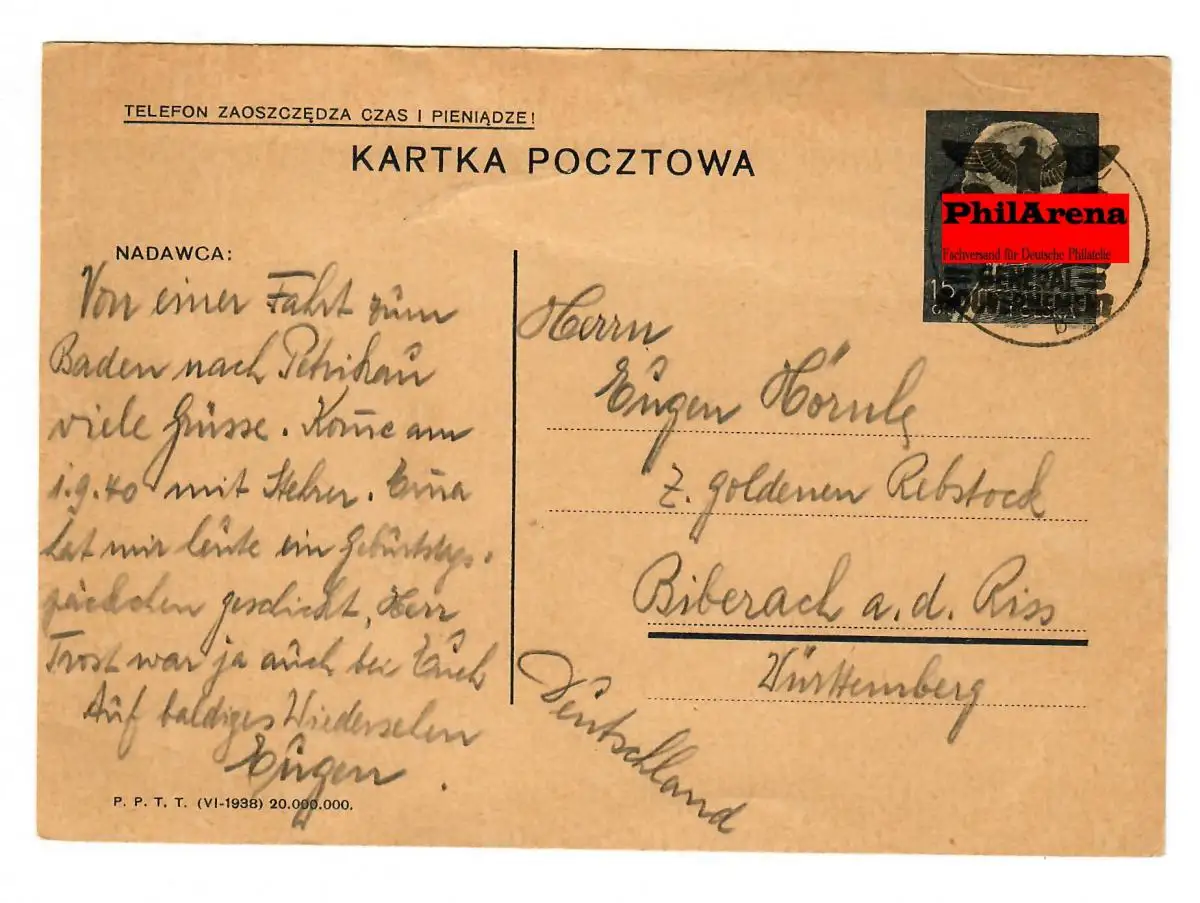 TELEFON ZAOSZCZĘDZA CZAS I PIENIĄDZE!
KARTKA POCZTOWA
PhilArena
Fachversand für Deutsche Philatelie
GENERAL
GOUVERNEMENT
15
NADAWCA:
Von einer Fahrt zum
Baden nach Petrikau
viele Grüsse. Kom̄e am
1.9.40 mit Stehrer. Em̄a
hat mir heute ein Geburtstags-
päckchen geschickt, Herr
Trost war ja auch bei Euch
Auf baldiges Wiedersehen
Eugen.
P. P. T. T. (VI-1938) 20.000.000.
Herrn
Eugen Hörnle
z. goldenen Rebstock
Biberach a. d. Riss
Württemberg
Deutschland